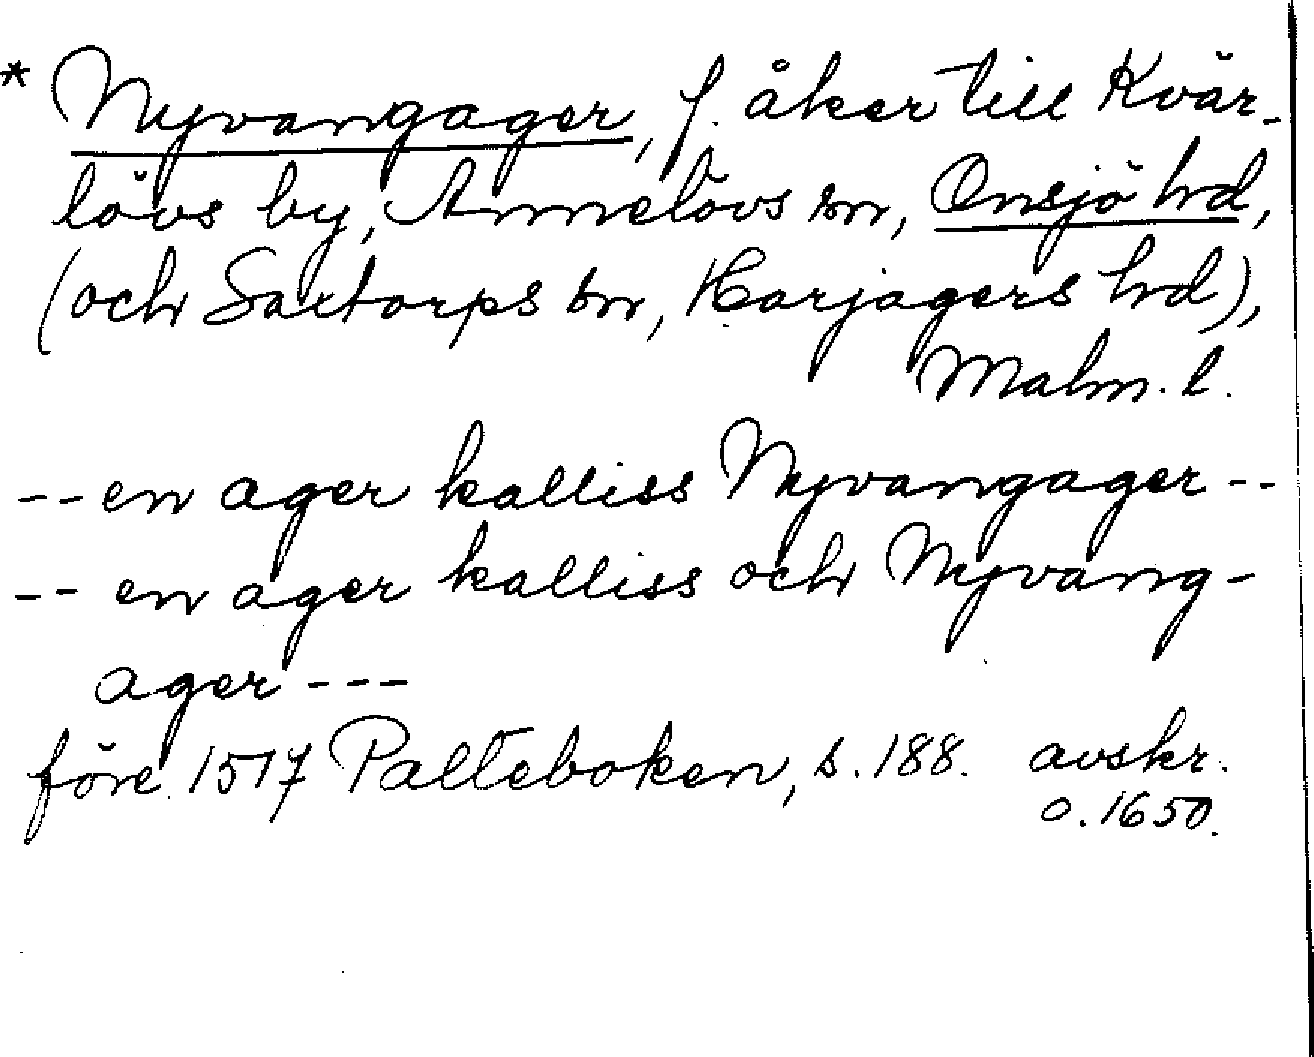 * Nyvangager, f. åker till Kvär-
lövs by, Annelövs sn, Onsjö hd,
(och Saxtorps sn, Harjagers hd),
Malm. l.
-- en ager kalliss Nyvangager --
-- en ager kalliss och Nyvang-
ager ---
före 1517 Palteboken, s. 188. avskr.
o. 1650.